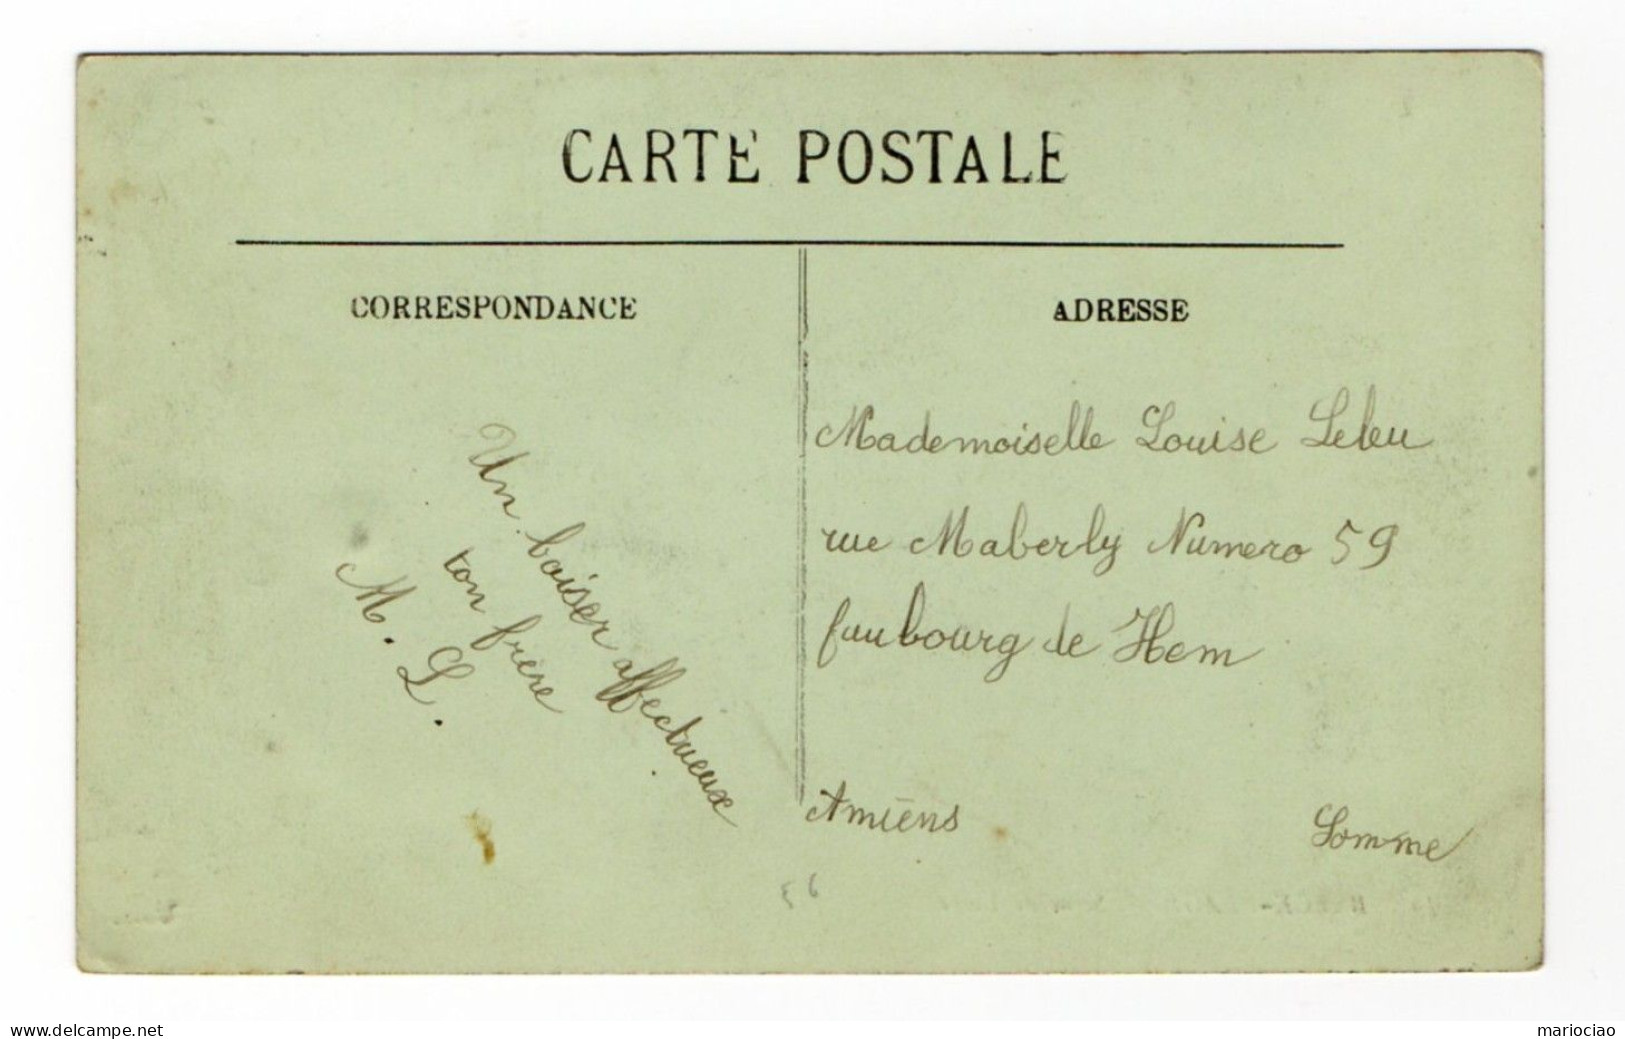 CARTE POSTALE
CORRESPONDANCE
ADRESSE
Un baiser affectueux
ton frère
M. L.
Mademoiselle Louise Leleu
rue Maberly Numero 59
faubourg de Hem
Amiens Somme
www.delcampe.net
mariociao